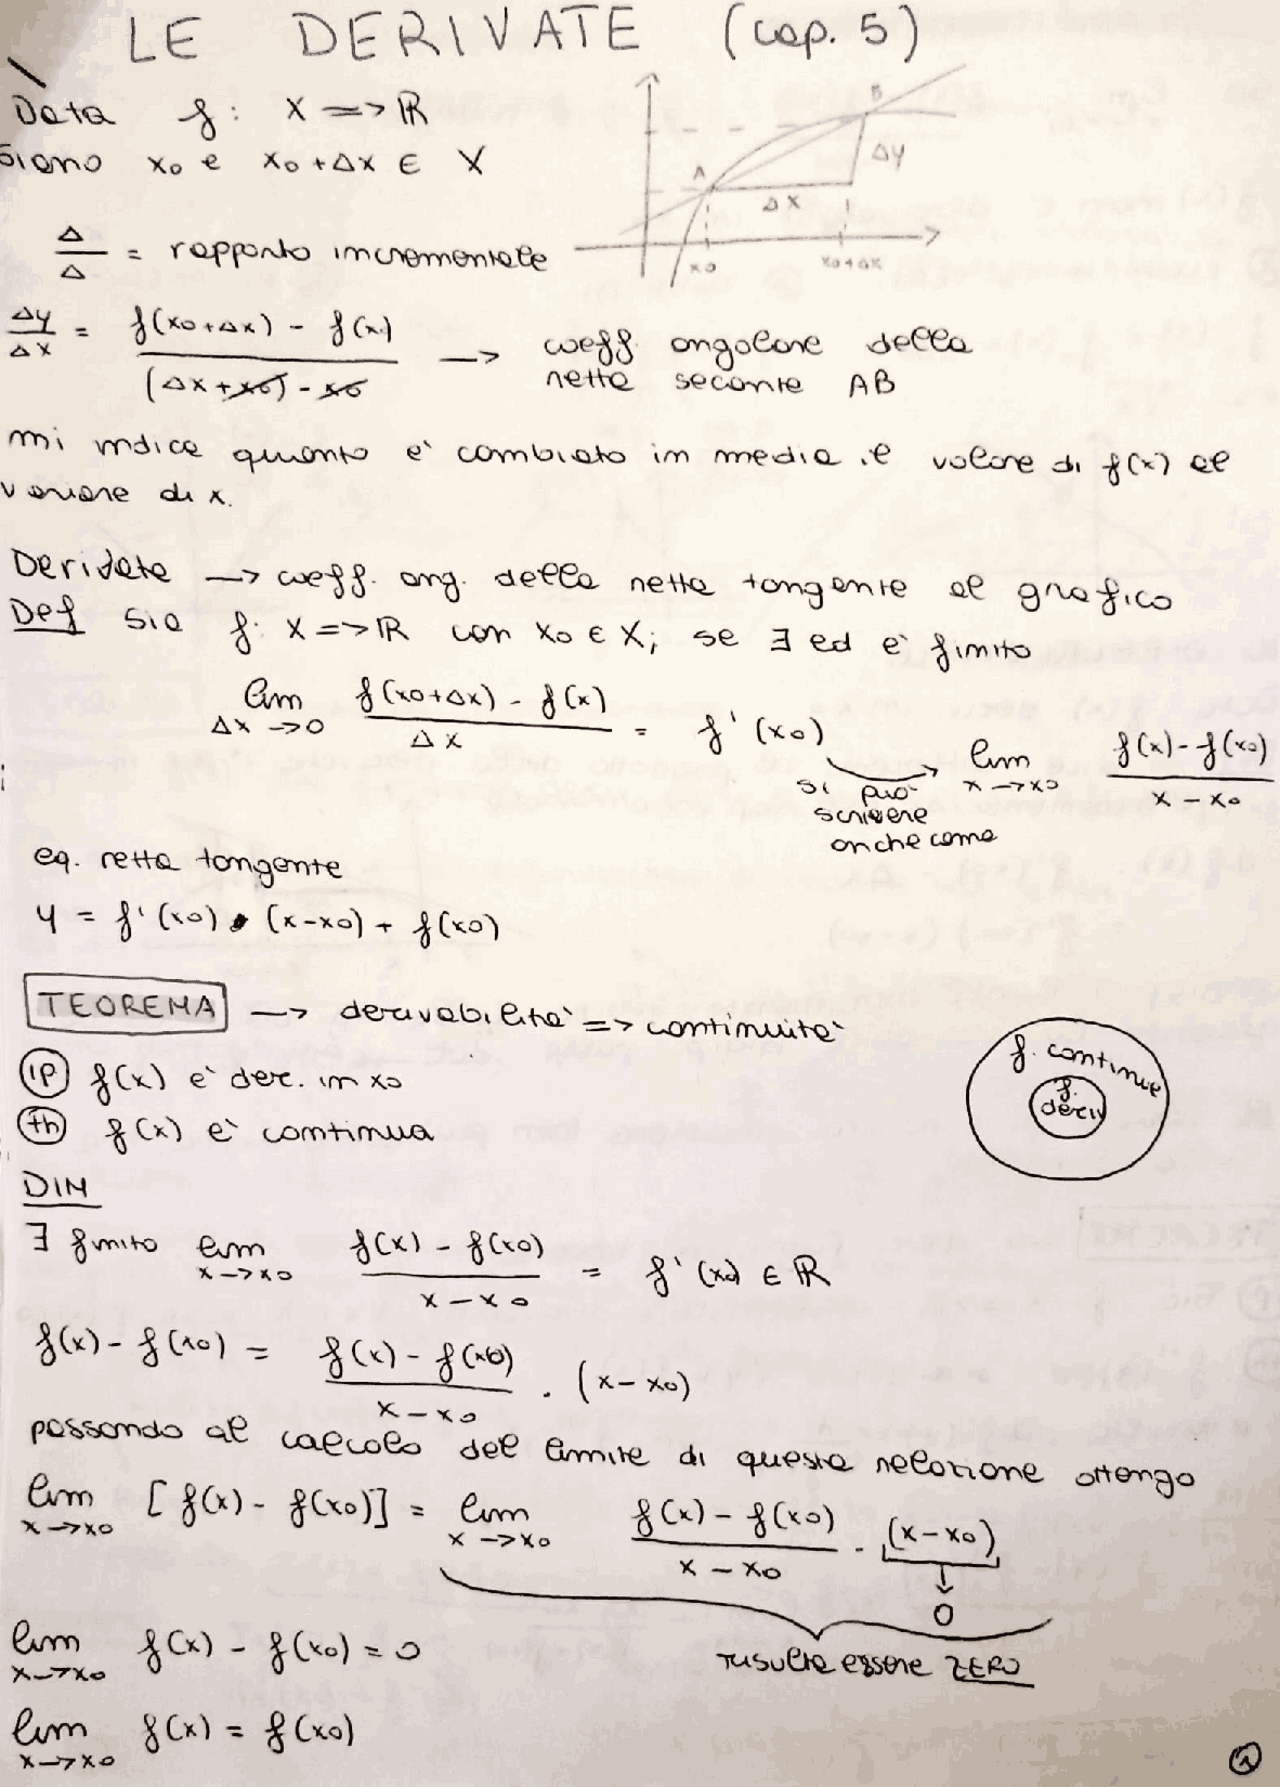 LE DERIVATE (cap. 5)
Data f: X => ℝ
Siano x0 e x0 + Δx ∈ X
A
B
Δy
Δx
x0
x0+Δx
Δ/Δ = rapporto incrementale
Δy/Δx = f(x0+Δx) - f(x) / (Δx + x0) - x0 —> coeff. angolare della
retta secante AB
mi indica quanto è cambiato in media il valore di f(x) al
variare di x.
Derivata —> coeff. ang. della retta tangente al grafico
Def Sia f: X => ℝ con x0 ∈ X; se ∃ ed è finito
lim Δx —> 0 f(x0+Δx) - f(x) / Δx = f'(x0)
si può
scrivere
anche come
lim x —> x0 f(x) - f(x0) / x - x0
eq. retta tangente
y = f'(x0) • (x-x0) + f(x0)
TEOREMA —> derivabilità => continuità
ip f(x) è der. in x0
th f(x) è continua
f. continue
f. deriv
DIM
∃ finito lim x —> x0 f(x) - f(x0) / x - x0 = f'(x0) ∈ ℝ
f(x) - f(x0) = f(x) - f(x0) / x - x0 . (x - x0)
passando al calcolo del limite di questa relazione ottengo
lim x —> x0 [f(x) - f(x0)] = lim x —> x0 f(x) - f(x0) / x - x0 . (x - x0)
↓
0
risulta essere ZERO
lim x —> x0 f(x) - f(x0) = 0
lim x —> x0 f(x) = f(x0)
1